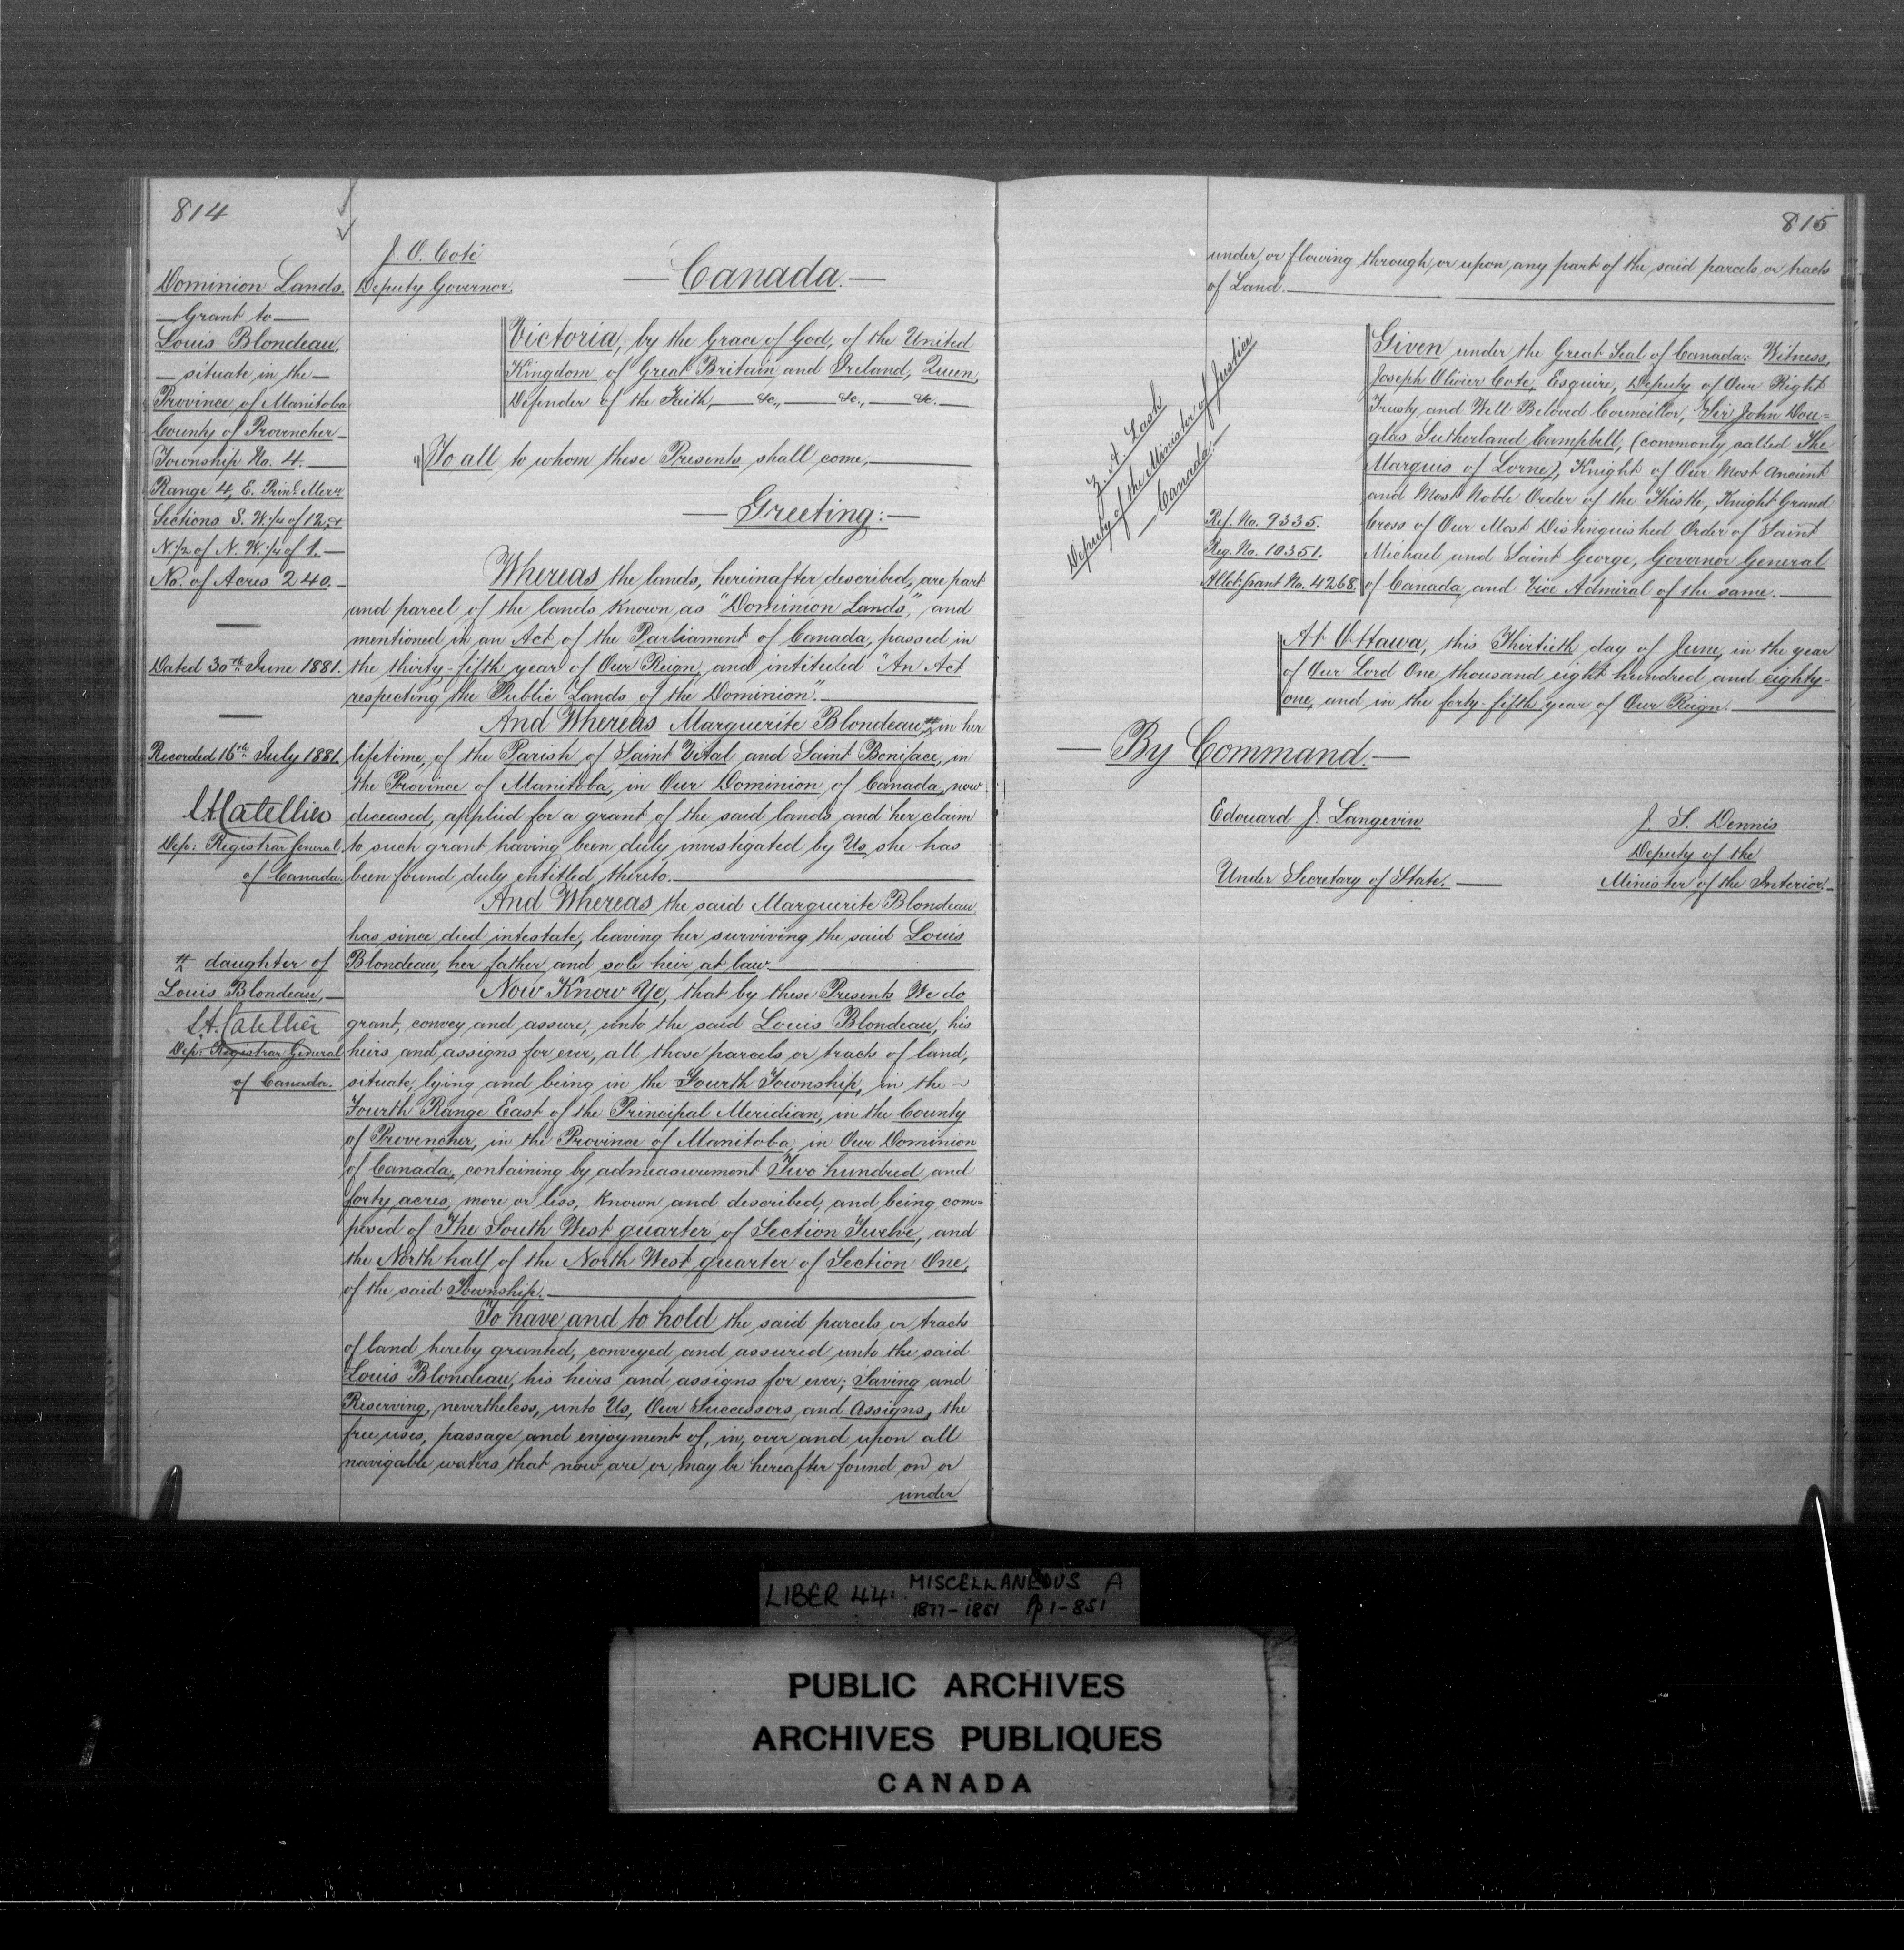 814
Dominion Lands.
— Grant to —
Louis Blondeau,
— situate in the —
Province of Manitoba
County of Provencher —
Township No. 4. —
Range 4, E. Prinl. Mern
Sections S. W. 1/4 of 12, &
N. 1/2 of N. W. 1/4 of 1. —
No. of Acres 240. —
Dated 30th June 1881.
Recorded 16th July 1881.
Catellier
Dep: Registrar General
of Canada.
daughter of
Louis Blondeau, —
Catellier
Dep: Registrar General
of Canada.
J. O. Coté
Deputy Governor.
— Canada. —
Victoria, by the Grace of God, of the United
Kingdom of Great Britain and Ireland, Queen,
Defender of the Faith, — &c., — &c., — &c. —
To all to whom these Presents shall come, —
— Greeting: —
Whereas the lands, hereinafter described, are part
and parcel of the lands known as "Dominion Lands," and
mentioned in an Act of the Parliament of Canada, passed in
the thirty-fifth year of Our Reign, and intituled "An Act
respecting the Public Lands of the Dominion". —
And Whereas Marguerite Blondeau, in her
lifetime, of the Parish of Saint Vital and Saint Boniface, in
the Province of Manitoba, in Our Dominion of Canada, now
deceased, applied for a grant of the said lands and her claim
to such grant having been duly investigated by Us she has
been found duly entitled thereto. —
And Whereas the said Marguerite Blondeau
has since died intestate, leaving her surviving the said Louis
Blondeau, her father and sole heir at law. —
Now Know Ye, that by these Presents We do
grant, convey and assure, unto the said Louis Blondeau, his
heirs and assigns for ever, all those parcels or tracts of land,
situate, lying and being in the Fourth Township, in the ~
Fourth Range East of the Principal Meridian, in the County
of Provencher, in the Province of Manitoba, in Our Dominion
of Canada, containing by admeasurement Two hundred and
forty acres, more or less, known and described, and being com=
posed of The South West quarter of Section Twelve, and
the North half of the North West quarter of Section One,
of the said Township. —
To have and to hold the said parcels or tracts
of land hereby granted, conveyed and assured unto the said
Louis Blondeau, his heirs and assigns for ever; Saving and
Reserving, nevertheless, unto Us, Our Successors and Assigns, the
free uses, passage and enjoyment of, in, over and upon all
navigable waters that now are or may be hereafter found on or
under
815
under, or flowing through, or upon, any part of the said parcels or tracts
of Land. —
Z. A. Lash
Deputy of the Minister of Justice
— Canada. —
Ref. No. 9335.
Reg. No. 10351.
Allot: Grant No. 4268.
Given under the Great Seal of Canada: Witness,
Joseph Olivier Cote, Esquire, Deputy of Our Right
Trusty and Well Beloved Councillor, Sir John Dou=
glas Sutherland Campbell, (commonly called The
Marquis of Lorne), Knight of Our Most Ancient
and Most Noble Order of the Thistle, Knight Grand
Cross of Our Most Distinguished Order of Saint
Michael and Saint George, Governor General
of Canada, and Vice Admiral of the same. —
At Ottawa, this Thirtieth day of June, in the year
of Our Lord One thousand eight hundred and eighty-
one, and in the forty-fifth year of Our Reign. —
— By Command. —
Edouard J. Langevin
Under Secretary of State. —
J. S. Dennis
Deputy of the
Minister of the Interior. —
LIBER 44: MISCELLANEOUS A
1877-1881 Pp 1-851
PUBLIC ARCHIVES
ARCHIVES PUBLIQUES
CANADA